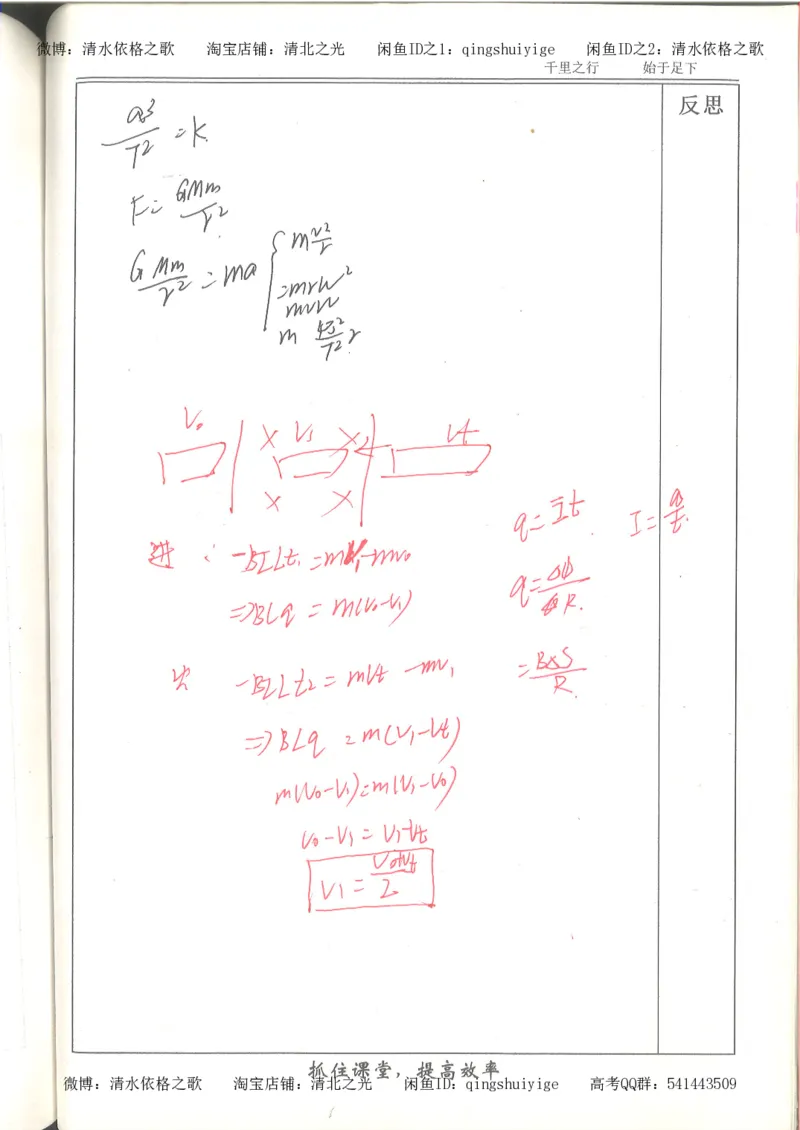 微博：清水依格之歌 淘宝店铺：清北之光 闲鱼ID之1：qingshuiyige 闲鱼ID之2：清水依格之歌
千里之行 始于足下
反思
a³/T² = K
F = GMm/r²
G Mm/r² = ma { m v²/r
= mrω²
mvω
m 4π²/T² r
V₀ V₁ Vt
× ×
× ×
q = It I = q/t
进： -BILt₁ = mV₁ - mv₀
q = ΔΦ/R
⇒ BLq = m(v₀-v₁)
出 -BILt₂ = mVt - mv₁
= BΔS/R
⇒ BLq = m(V₁-Vt)
m(V₀-V₁) = m(V₁-V₀)
V₀-V₁ = V₁-Vt
V₁ = (V₀+Vt)/2
抓住课堂，提高效率
微博：清水依格之歌 淘宝店铺：清北之光 闲鱼ID：qingshuiyige 高考QQ群：541443509